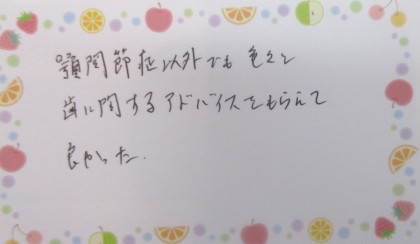 顎関節症以外でも色々と
歯に関するアドバイスをもらえて
良かった.